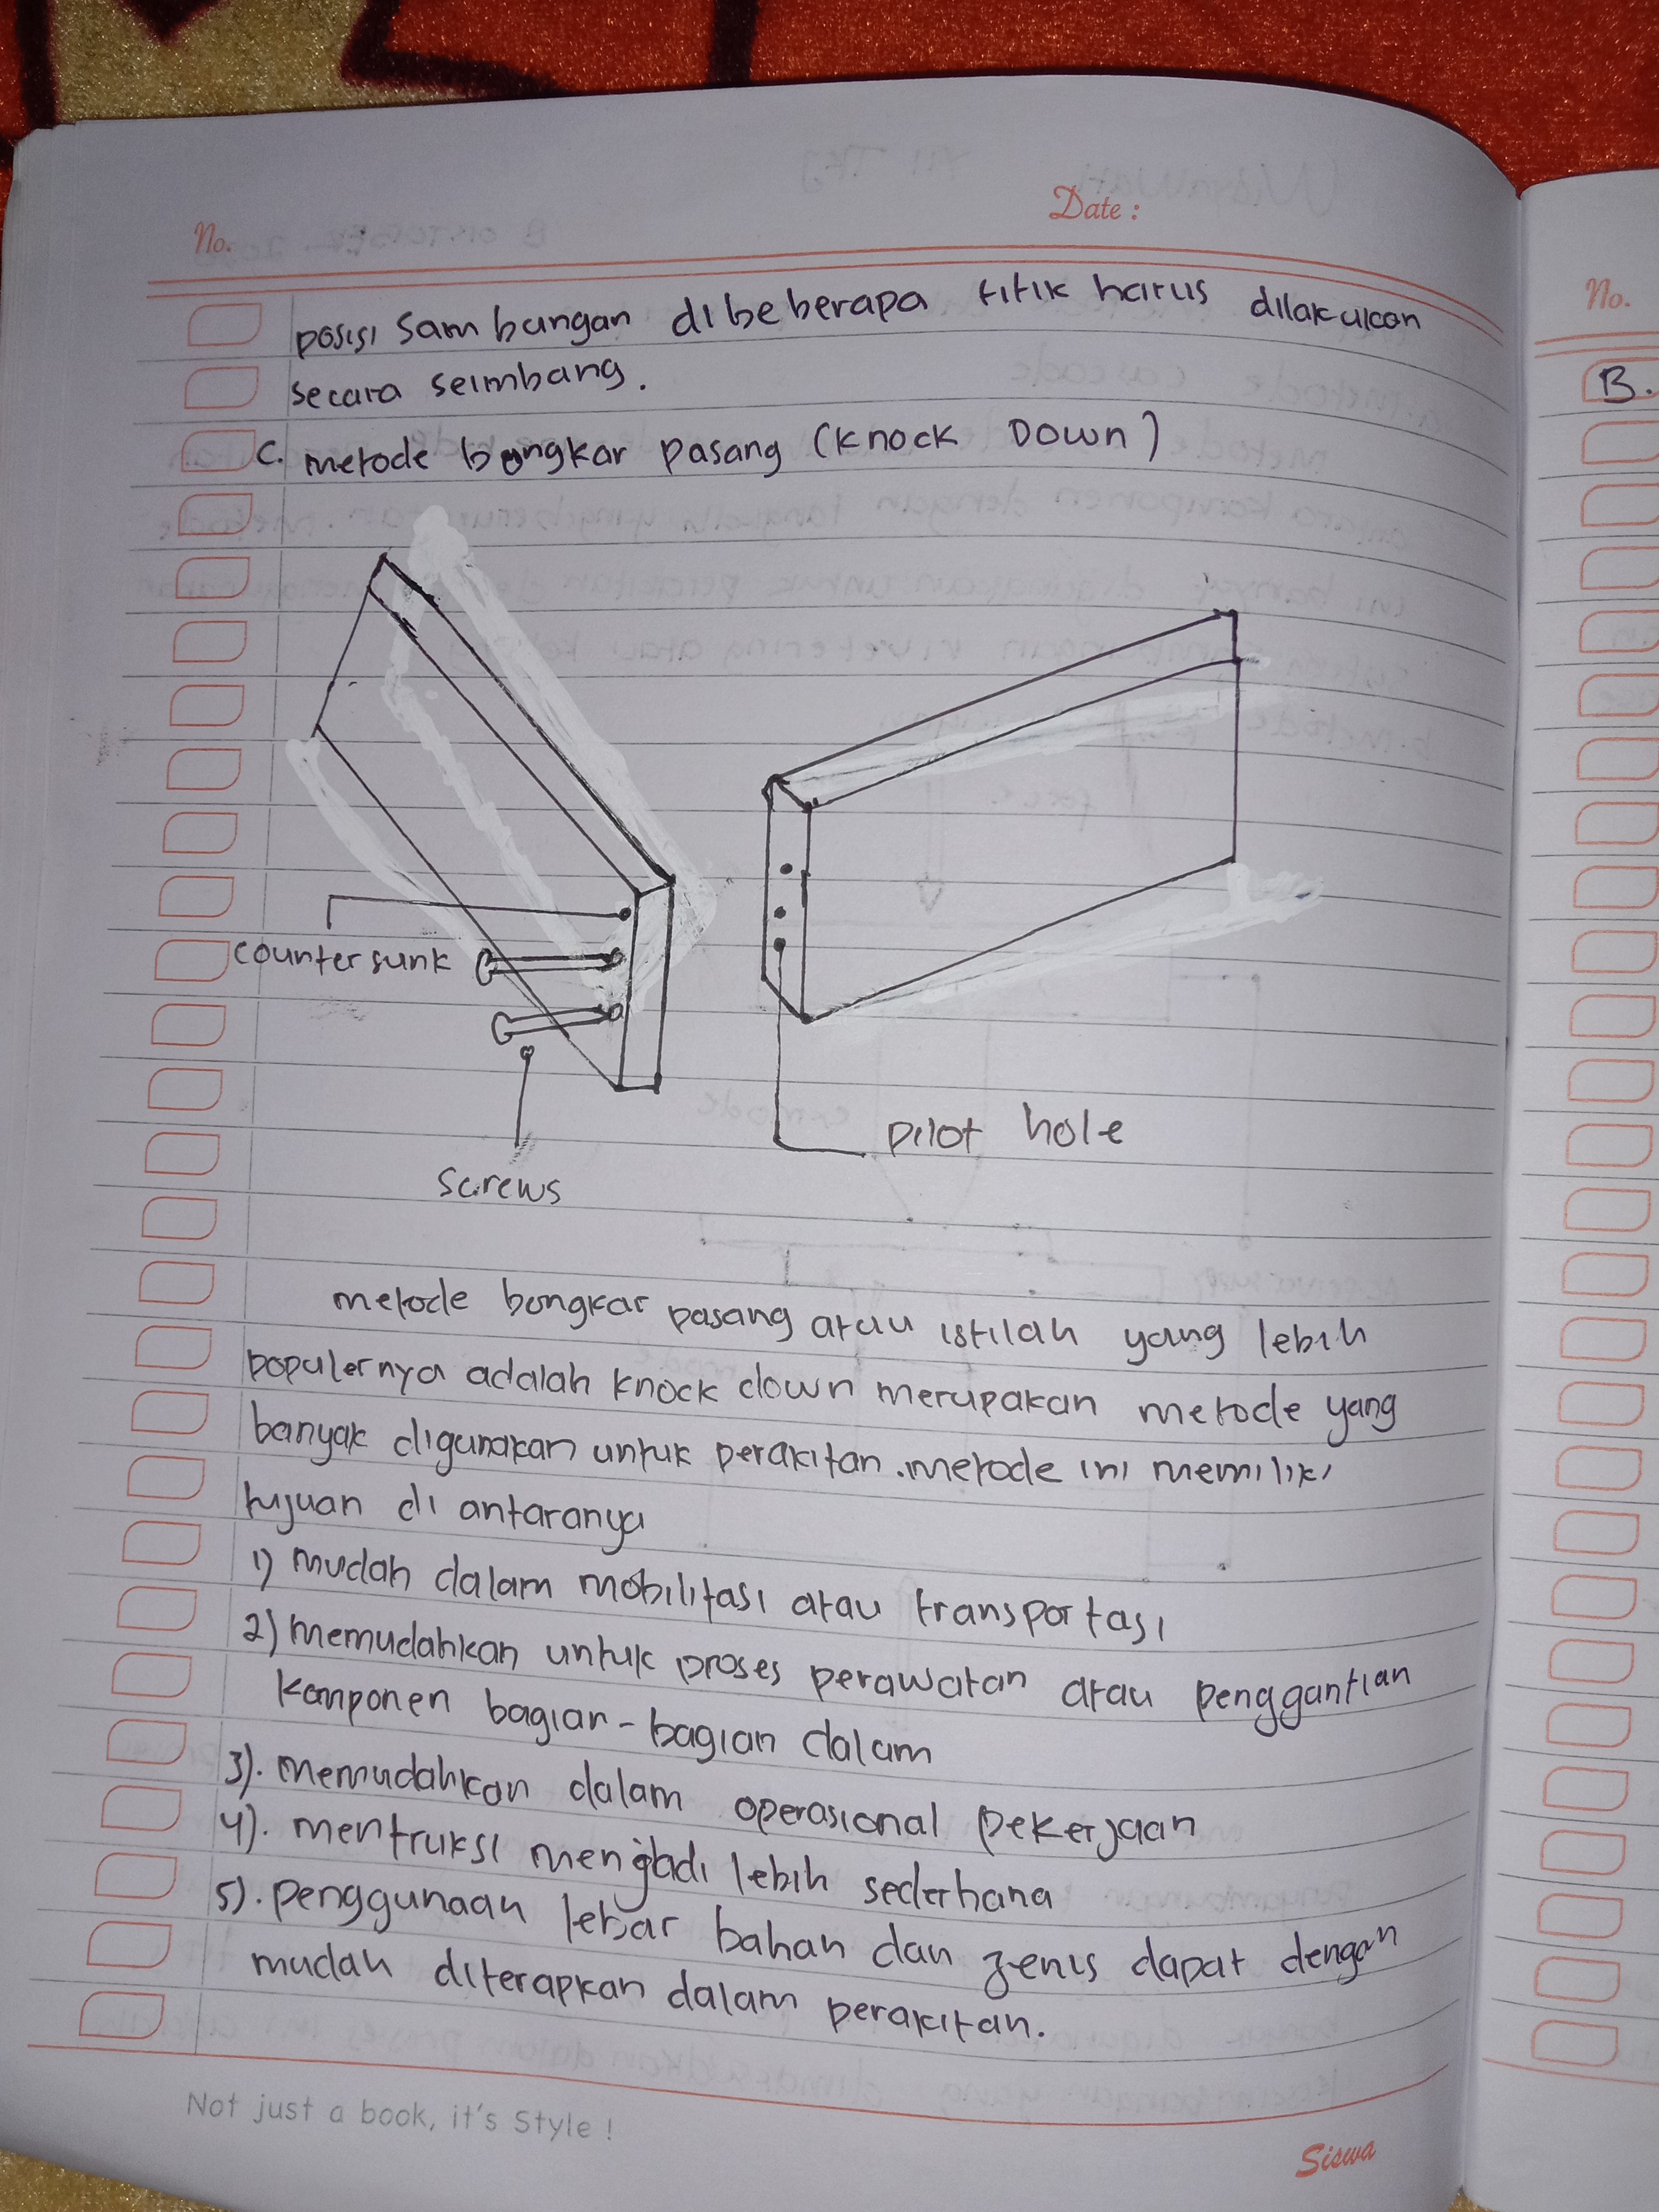 No.
Date :
posisi sambungan dibeberapa titik harus dilakukan
secara seimbang.
c. metode bongkar pasang (Knock Down)
countersunk
screws
pilot hole
metode bongkar pasang atau istilah yang lebih
populernya adalah knock down merupakan metode yang
banyak digunakan untuk perakitan.metode ini memiliki
tujuan di antaranya
1) mudah dalam mobilitasi atau transportasi
2) memudahkan untuk proses perawatan atau penggantian
komponen bagian-bagian dalam
3). memudahkan dalam operasional pekerjaan
4). mentruksi menjadi lebih sederhana
5). penggunaan lebar bahan dan jenis dapat dengan
mudah diterapkan dalam perakitan.
Not just a book, it's Style !
Siswa
No.
B.